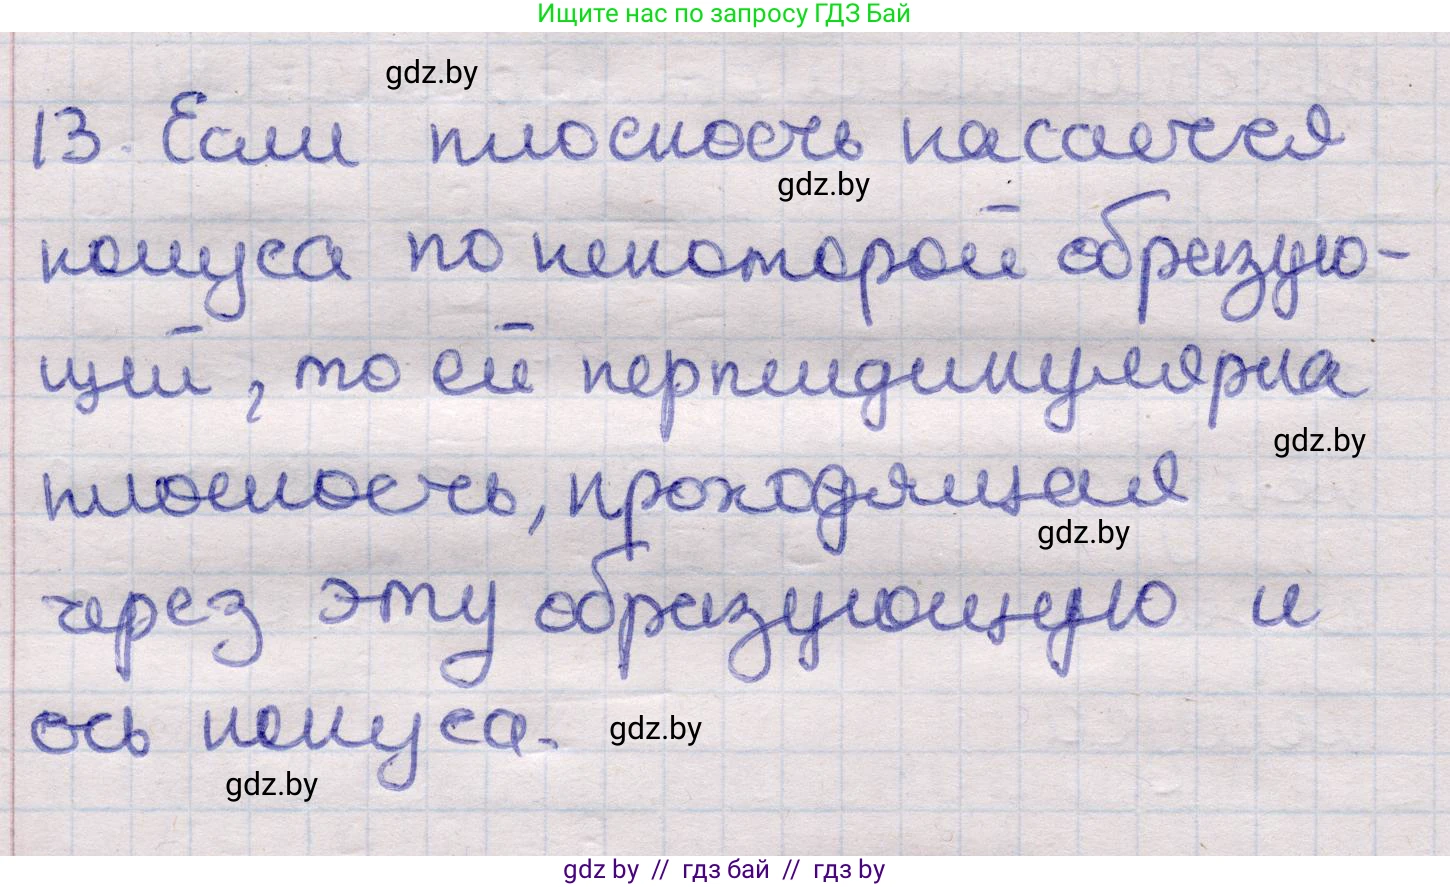 Ищите нас по запросу ГДЗ Бай
gdz.by
13. Если плоскость касается
gdz.by
конуса по некоторой образую-
щей, то ей перпендикулярна
gdz.by
плоскость, проходящая
gdz.by
через эту образующую и
ось конуса.
gdz.by
gdz.by
gdz by // гдз бай // гдз by